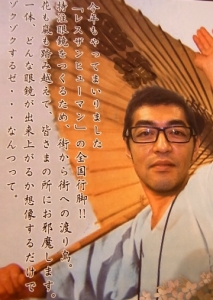 今年もやってまいりました
「レスザンヒューマン」の全国行脚!!
特注眼鏡をつくるため、街から街への渡り鳥。
花も嵐も踏み越えて、皆さまの所にお邪魔します。
一体、どんな眼鏡が出来上がるか想像するだけで
ゾクゾクするぜ・・・なんつって